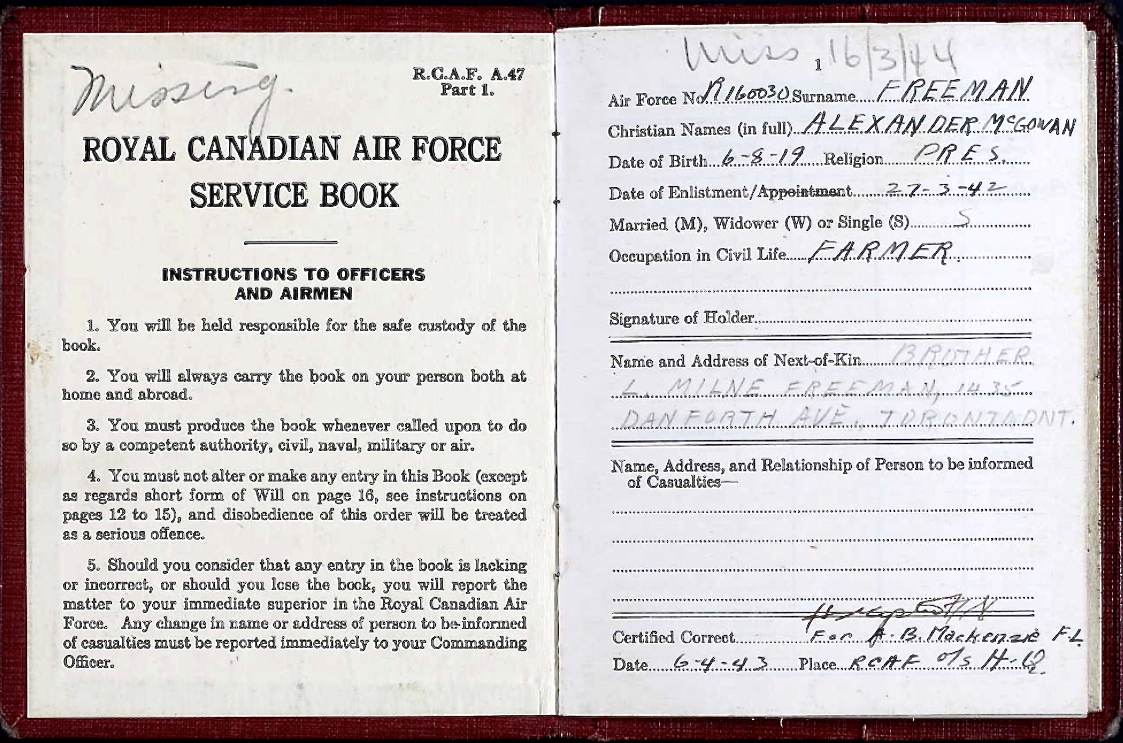 Missing.
R.C.A.F. A.47
Part 1.
ROYAL CANADIAN AIR FORCE
SERVICE BOOK
INSTRUCTIONS TO OFFICERS
AND AIRMEN
1. You will be held responsible for the safe custody of the
book.
2. You will always carry the book on your person both at
home and abroad.
3. You must produce the book whenever called upon to do
so by a competent authority, civil, naval, military or air.
4. You must not alter or make any entry in this Book (except
as regards short form of Will on page 16, see instructions on
pages 12 to 15), and disobedience of this order will be treated
as a serious offence.
5. Should you consider that any entry in the book is lacking
or incorrect, or should you lose the book, you will report the
matter to your immediate superior in the Royal Canadian Air
Force. Any change in name or address of person to be informed
of casualties must be reported immediately to your Commanding
Officer.
Miss 16/3/44
1
Air Force No. R160030 Surname FREEMAN
Christian Names (in full) ALEXANDER McGOWAN
Date of Birth 6-8-19 Religion PRES.
Date of Enlistment/Appointment 27-3-42
Married (M), Widower (W) or Single (S) S
Occupation in Civil Life FARMER
Signature of Holder
Name and Address of Next-of-Kin BROTHER
L. MILNE FREEMAN, 1435
DANFORTH AVE., TORONTO ONT.
Name, Address, and Relationship of Person to be informed
of Casualties—
Certified Correct For A.B. Mackenzie F/L
Date 6-4-43 Place RCAF O/S H-Q.